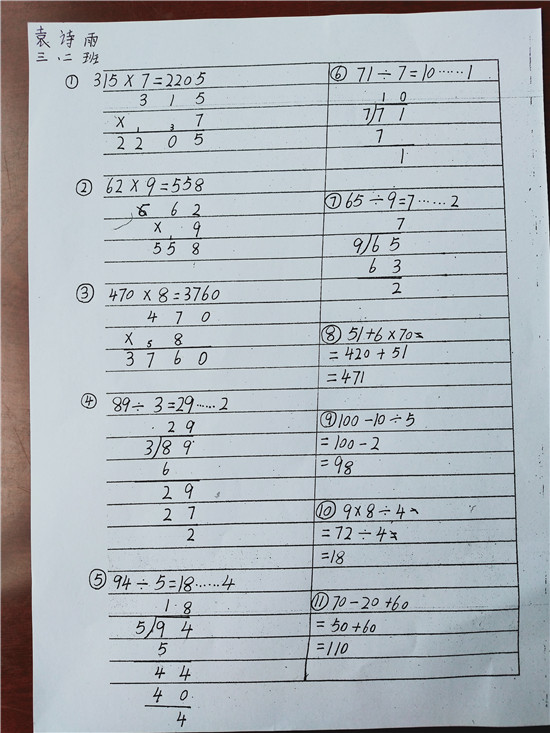 袁诗雨
三.二班
① 315×7=2205
3 1 5
× 1 3 7
2 2 0 5
② 62×9=558
6 2
× 1 9
5 5 8
③ 470×8=3760
4 7 0
× 5 8
3 7 6 0
④ 89÷3=29……2
2 9
3/8 9
6
2 9
2 7
2
⑤ 94÷5=18……4
1 8
5/9 4
5
4 4
4 0
4
⑥ 71÷7=10……1
1 0
7/7 1
7
1
⑦ 65÷9=7……2
7
9/6 5
6 3
2
⑧ 51+6×70=
=420+51
=471
⑨ 100-10÷5
=100-2
=98
⑩ 9×8÷4=
=72÷4=
=18
⑪ 70-20+60
=50+60
=110